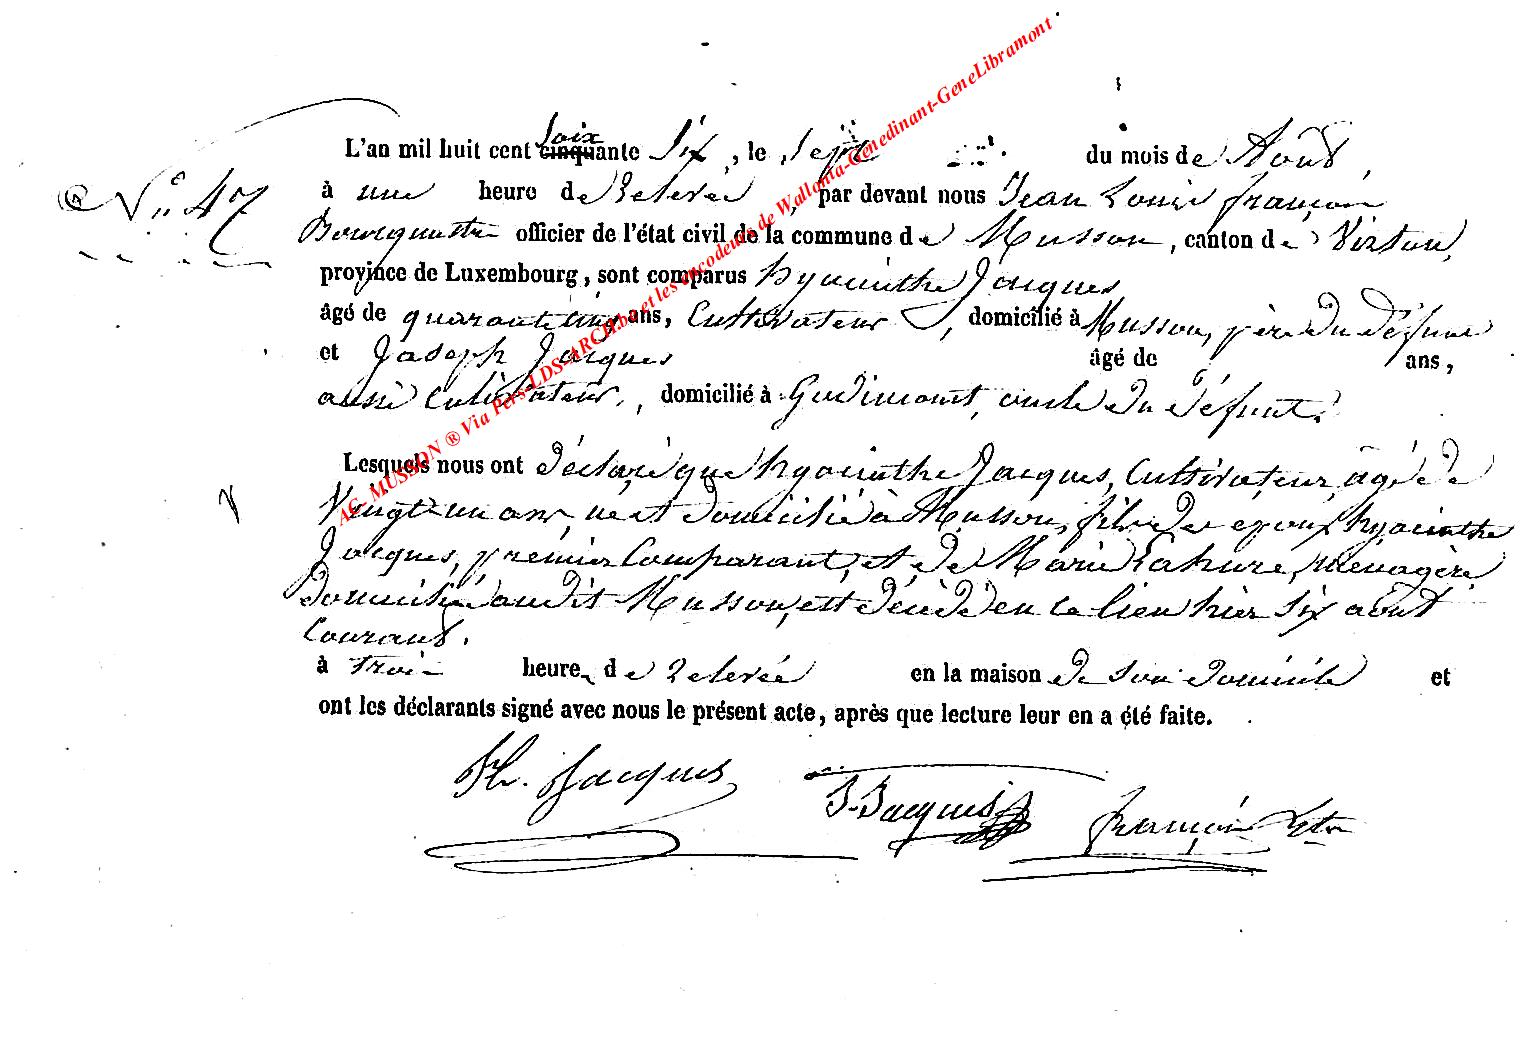 L'an mil huit cent soixante six, le sept du mois de Août,
N° 47
à une heure de relevée, par devant nous Jean Louis françois
officier de l'état civil de la commune de Musson, canton de Virton,
province de Luxembourg, sont comparus hyacinthe Jacques
âgé de quarante ans, Cultivateur, domicilié à Musson, père du défunt
et Joseph Jacques âgé de ans,
aussi Cultivateur, domicilié à Gudimont, oncle du défunt.
Lesquels nous ont déclaré que hyacinthe Jacques, Cultivateur, âgé de
Vingt un ans, né et domicilié à Musson, fils des époux hyacinthe
Jacques, premier Comparant, et de Marie Lahure, ménagère
domiciliés audit Musson, est décédé en ce lieu hier six août
Courant.
à trois heures de relevée en la maison de son domicile et
ont les déclarants signé avec nous le présent acte, après que lecture leur en a été faite.
H. Jacques
J. Jacques
françois
AC- MUSSON ® Via Pers-LDS-ARCH.be et les encodeurs de Wallonia-Genedinant-GeneLibramont